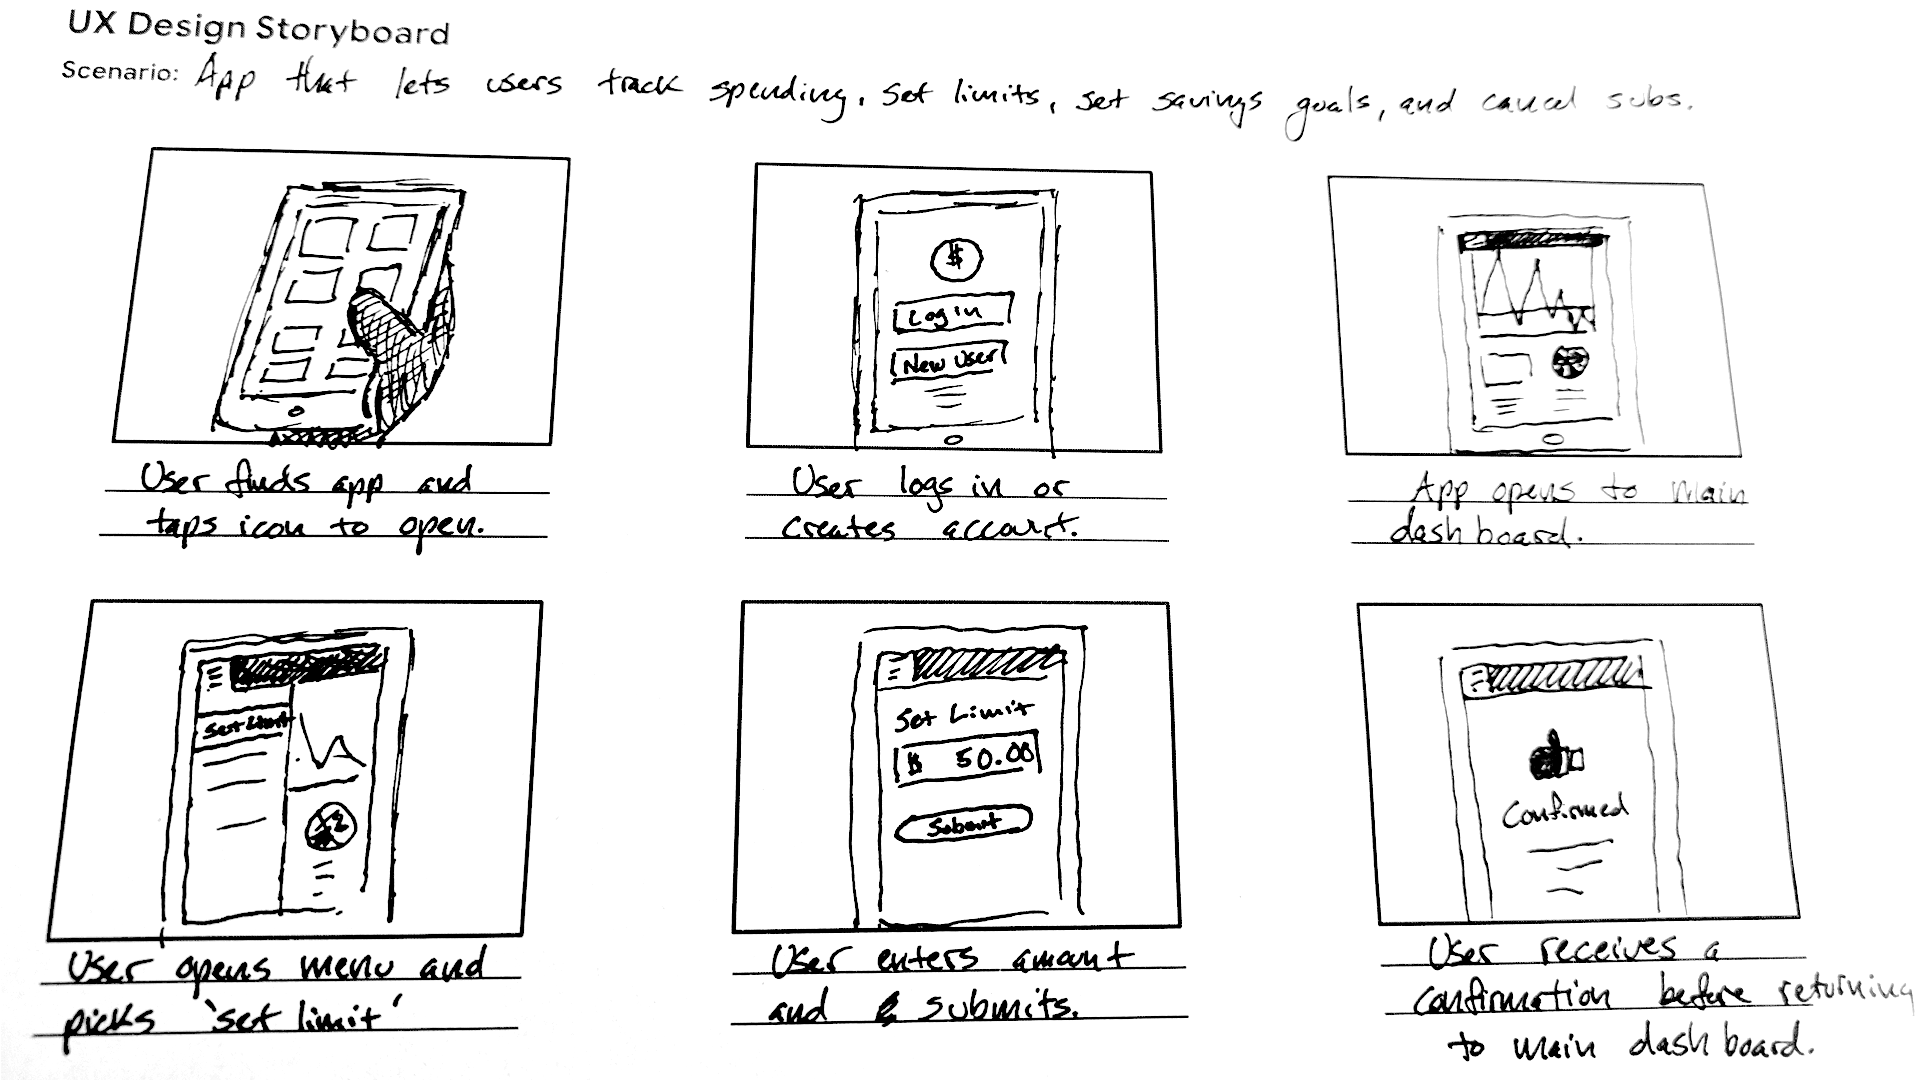 UX Design Storyboard
Scenario: App that lets users track spending, set limits, set savings goals, and cancel subs.
$
Log in
New User
User finds app and
taps icon to open.
User logs in or
creates account.
App opens to main
dashboard.
Set Limit
Set Limit
$ 50.00
Submit
Confirmed
User opens menu and
picks 'set limit'
User enters amount
and submits.
User receives a
confirmation before returning
to main dashboard.